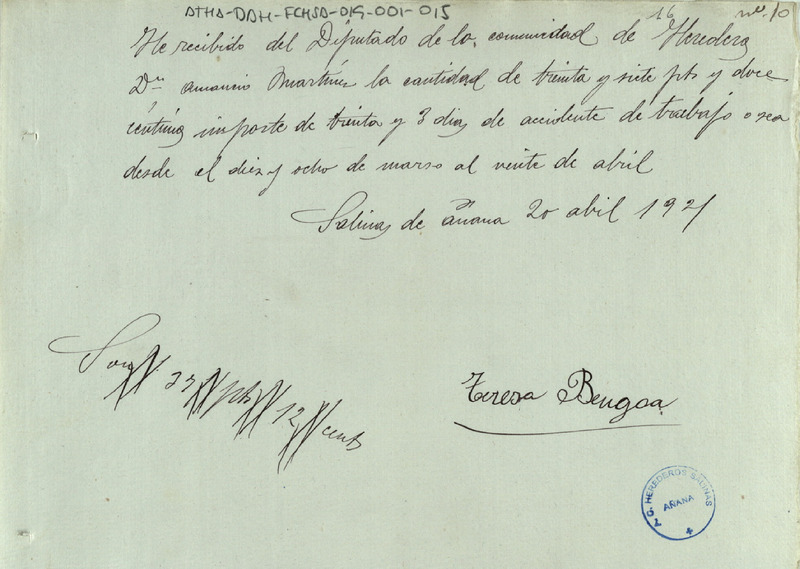 ATHA-DAH-FCHSA-019-001-015
16 no. 10
He recibido del Diputado de la comunidad de Herederos
Dn amancio Martinez la cantidad de treinta y siete pts y doce
céntimos importe de treinta y 3 dias de accidente de trabajo o sea
desde el diez y ocho de marso al veinte de abril
Salinas de añana 20 abril 1921
Son 37 pts 12 cents
Teresa Bengoa
HEREDEROS SALINAS
AÑANA